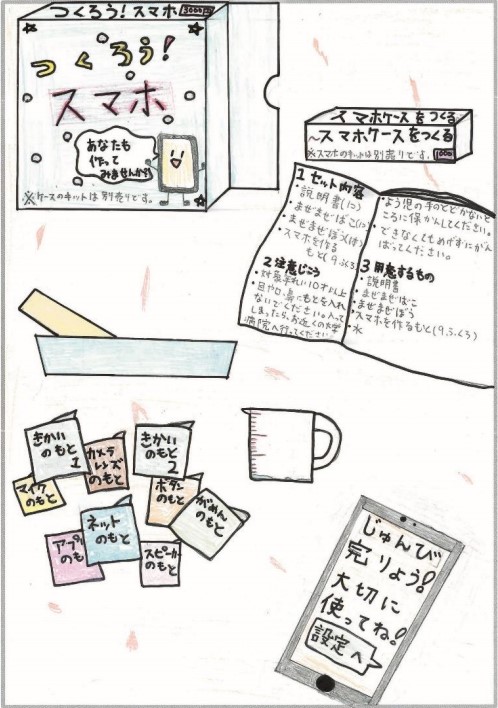 つくろう！スマホ 3000円
つくろう！
スマホ
あなたも
作って
みませんか？
※ケースのキットは別売りです。
スマホケースをつくる
～スマホケースをつくる
※スマホのキットは別売りです。 1000
1 セット内容
・説明書(1こ)
・まぜまぜばこ(1こ)
・まぜまぜぼう(1ぽん)
・スマホを作る
もと(9ふくろ)
2 注意じこう
・対象年れい10才以上
・目や口、鼻にもとを入れ
ないでください。入って
しまったら、お近くの大学
病院へ行ってください
・よう児の手のとどかないと
ころに保かんしてください。
・できなくてもめげずにがん
ばってください。
3 用意するもの
・説明書
・まぜまぜばこ
・まぜまぜぼう
・スマホを作るもと(9ふくろ)
・水
きかい
のもと
1
カメラ
レンズ
のもと
きかい
のもと
2
マイク
のもと
ボタン
のもと
がめん
のもと
ネット
のもと
アプリ
のも
スピーカー
のもと
じゅんび
完りょう！
大切に
使ってね！
設定へ